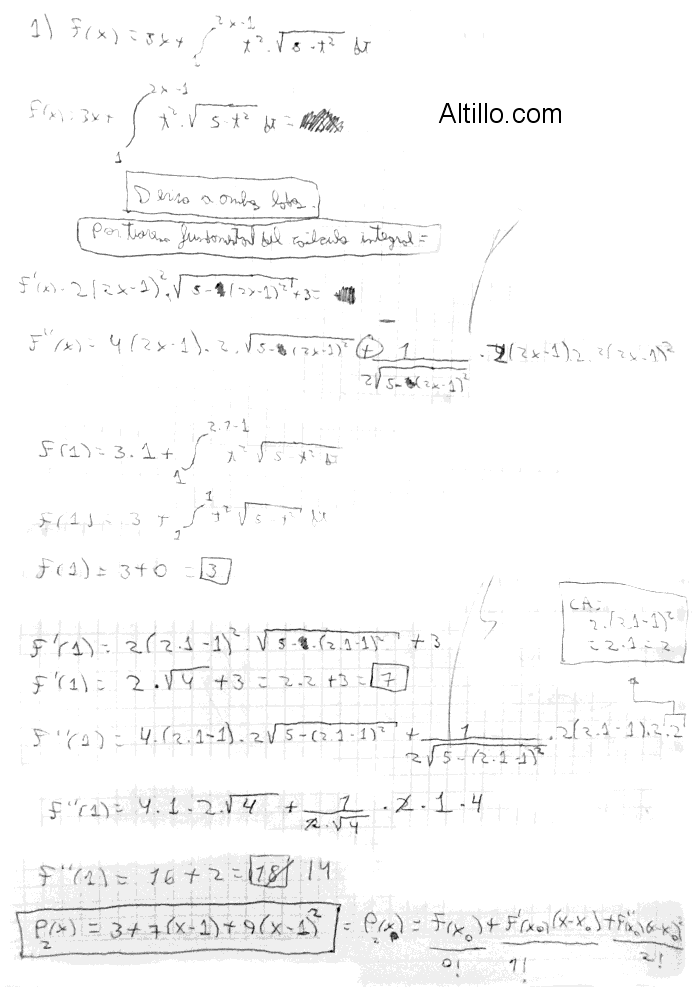 1) F(x) = 3x + ∫ 2x-1 t². √5-t² dt
Altillo.com
F(x) = 3x + ∫₁ 2x-1 t². √5-t² dt =
Derivo a ambos lados.
Por teorema fundamental del cálculo integral =
F'(x) = 2(2x-1)². √5-(2x-1)² + 3 =
F''(x) = 4(2x-1).2.√5-(2x-1)² + - 1/2√5-(2x-1)² . 2(2x-1)2.2(2x-1)²
F(1) = 3.1 + ∫₁ 2.1-1 t² √5-t² dt
F(1) = 3 + ∫₁¹ t² √5-t² dt
F(1) = 3+0 = 3
CA:
2.(2.1-1)²
= 2.1 = 2
F'(1) = 2(2.1-1)². √5-(2.1-1)² + 3
F'(1) = 2.√4 + 3 = 2.2+3 = 7
F''(1) = 4.(2.1-1).2√5-(2.1-1)² + 1/2√5-(2.1-1)² . 2(2.1-1).2.2
F''(1) = 4.1.2.√4 + 1/2.√4 . 2.1.4
F''(1) = 16+2 = 18 14
P₂(x) = 3+7(x-1)+9(x-1)² = P₂(x) = F(x₀)/0! + F'(x₀)(x-x₀)/1! + F''(x₀)(x-x₀)²/2!